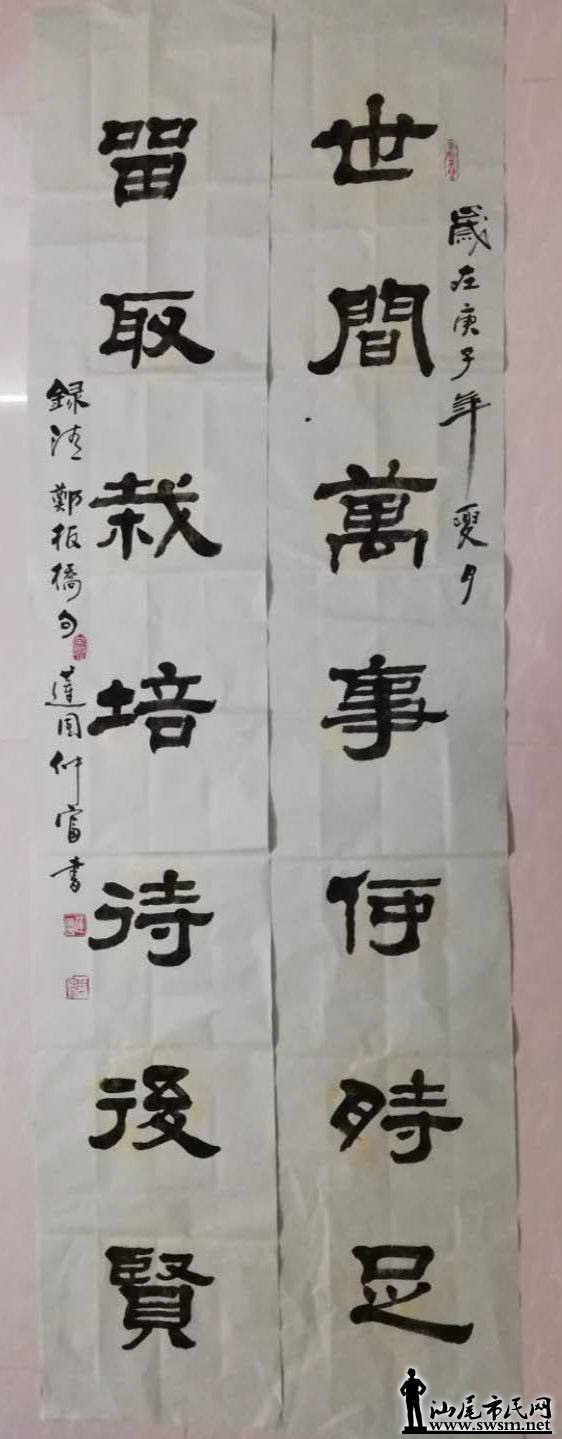 歲在庚子年夏月
世間萬事何時足
留取栽培待後賢
録清鄭板橋句 蓮園仲富書
汕尾市民网
www.swsm.net